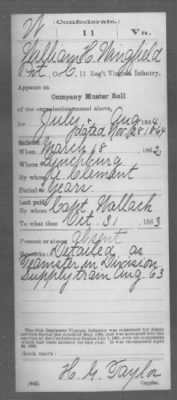 (Confederate.)
W 11 Va.
William H. Wingfield
Pvt, Co. C, 11 Reg't Virginia Infantry.
Appears on
Company Muster Roll
of the organization named above,
for July & Aug, 1864
dated Nov 22 1864
Enlisted:
When March 18, 1862
Where Lynchburg
By whom Clement
Period Years
Last paid:
By whom Capt Wallach
To what time Oct. 31, 1863
Present or absent Absent
Remarks: Detailed as
Teamster in Division
Supply train Aug. 63
The 11th Regiment Virginia Infantry was
Book mark:
H. G. Taylor
(642) Copyist.